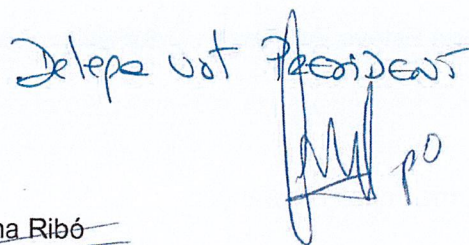 Delega vot PRESIDENT
pO
na Ribó